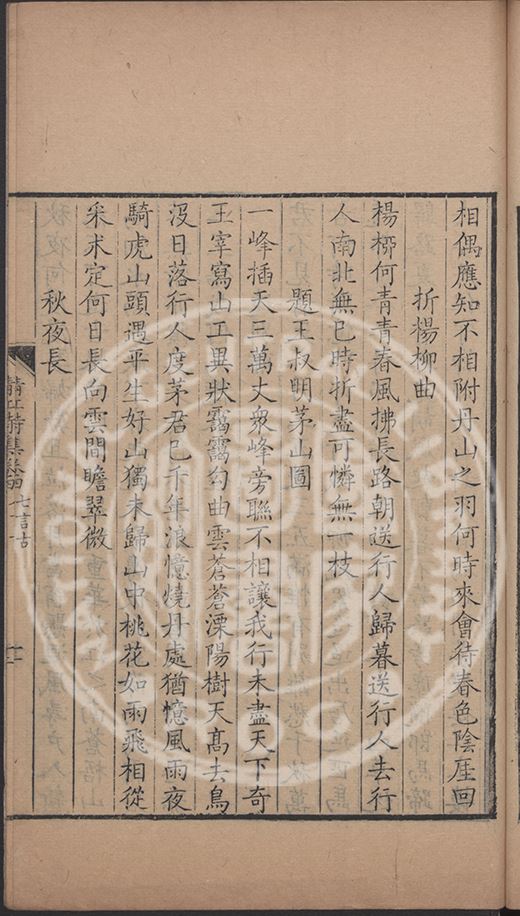 相偶應知不相附丹山之羽何時來會待春色陰厓回
折楊柳曲
楊桺何青青春風拂長路朝送行人歸暮送行人去行
人南北無已時折盡可憐無一枝
題王叔明茅山圖
一峰插天三萬丈衆峰旁聯不相讓我行未盡天下奇
王宰寫山工異狀靄靄勾曲雲蒼蒼溧陽樹天高去鳥
沒日落行人度茅君已千年浪憶燒丹處猶憶風雨夜
騎虎山頭遇平生好山獨未歸山中桃花如雨飛相從
采朮定何日長向雲間瞻翠微
秋夜長
集卷四 七言古
十二